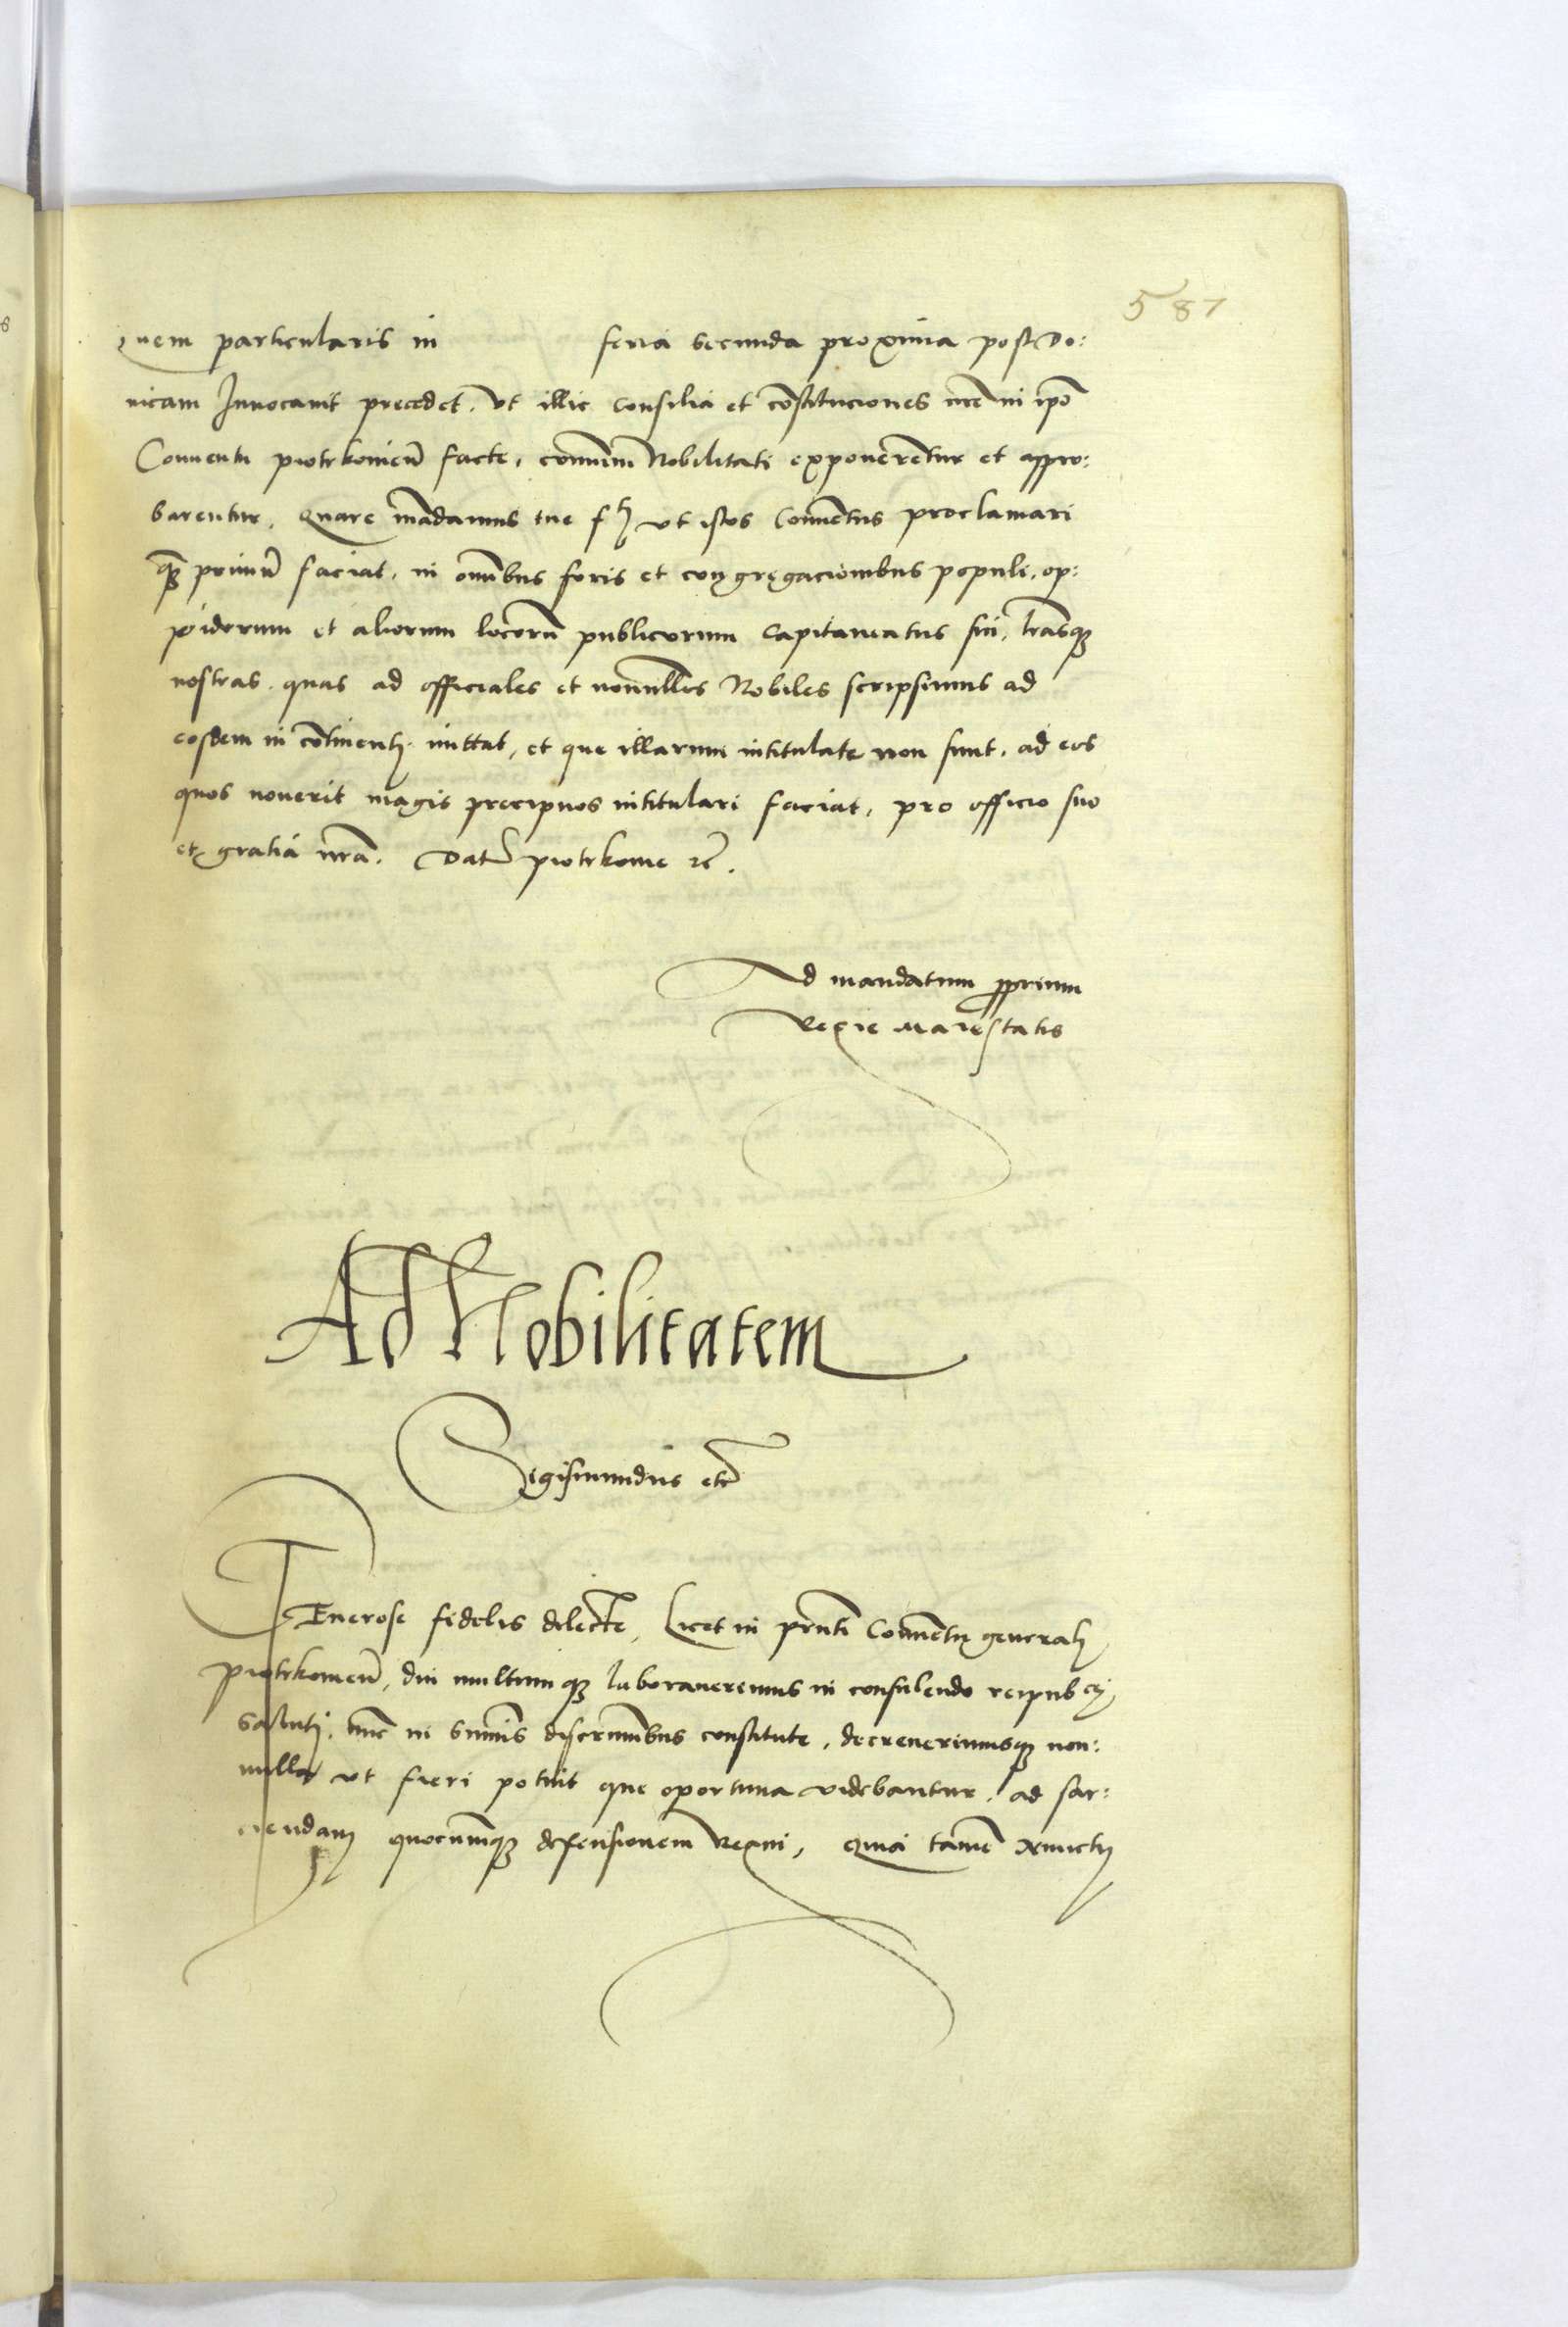 587
quem particularis in feria secunda proxima post Do:
nicam Invocavit precedet, ut illic consilia et cōstituciones nrē in ipō
Conventu piotrkovien̄ facte, comuni Nobilitati exponerētur et appro:
barentur. Quare mādamus tue f. ut istos Convētus proclamari
q̄ȝ primū faciat, in om̄ibus foris et congregacionibus populi, op:
pidorum et aliorum locorū publicorum Capitaneatus sui, l̄rasqȝ
nostras, quas ad officiales et nonnullos Nobiles scripsimus ad
eosdem in cōtinenti mittat, et que illarum intitulate non sunt, ad eos
quos noverit magis precipuos intitulari faciat, pro officio suo
et gratia nrā. Dat̄ piotrkovie rc̄.
Ad mandatum proprium
Regie Maiestatis
Ad Nobilitatem
Sigismundus etc̄
GEnerose fidelis dilecte, Licet in prn̄ti Convētu generali
piotrkovien̄, diu multumqȝ laboraverimus in consulendo reipub ce
saluti, nūc in sum̄is discrimībus constitute, decreverimusqȝ non:
nulla ut fieri potuit que oportuna videbantur, ad sar:
ciendam quocumqȝ defensionem Regni, Quia tamē